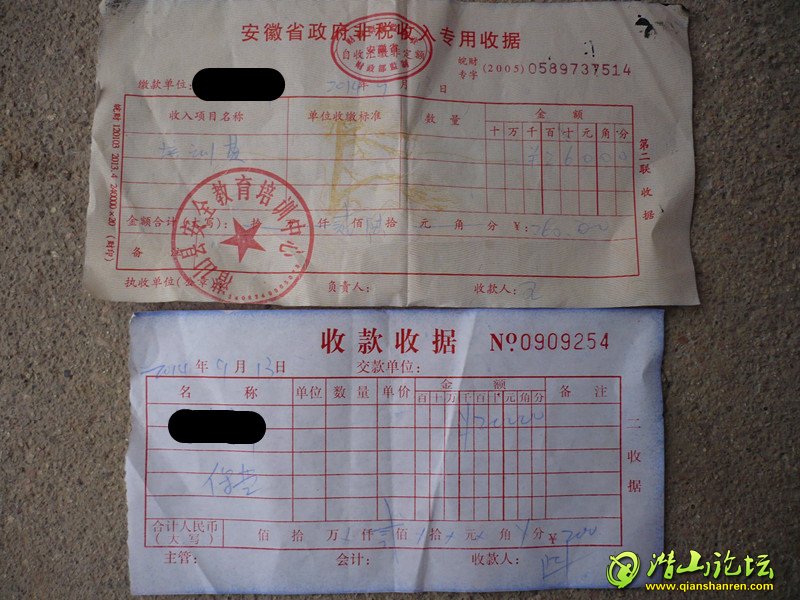 安徽省政府非税收入专用收据
财政部监制
皖财
专字 (2005) 0589737514
缴款单位：
2014年9月13日
收入项目名称 单位收缴标准 数量 金额
十万千百十元角分
培训费 ¥26000
金额合计(大写)： 拾 万 仟 贰佰 陆拾 元 角 分 ¥：260.00
备
执收单位(公章) 负责人： 收款人：
潜山县安全教育培训中心
第二联 收据
收款收据 №0909254
2014年9月13日 交款单位：
名称 单位 数量 单价 金额 备注
百十万千百十元角分
¥20000
保堂
合计人民币
(大写) 佰 拾 万 仟 佰 拾 元 角 分 ¥200
主管： 会计： 收款人：
二 收据
潜山论坛
www.qianshanren.com